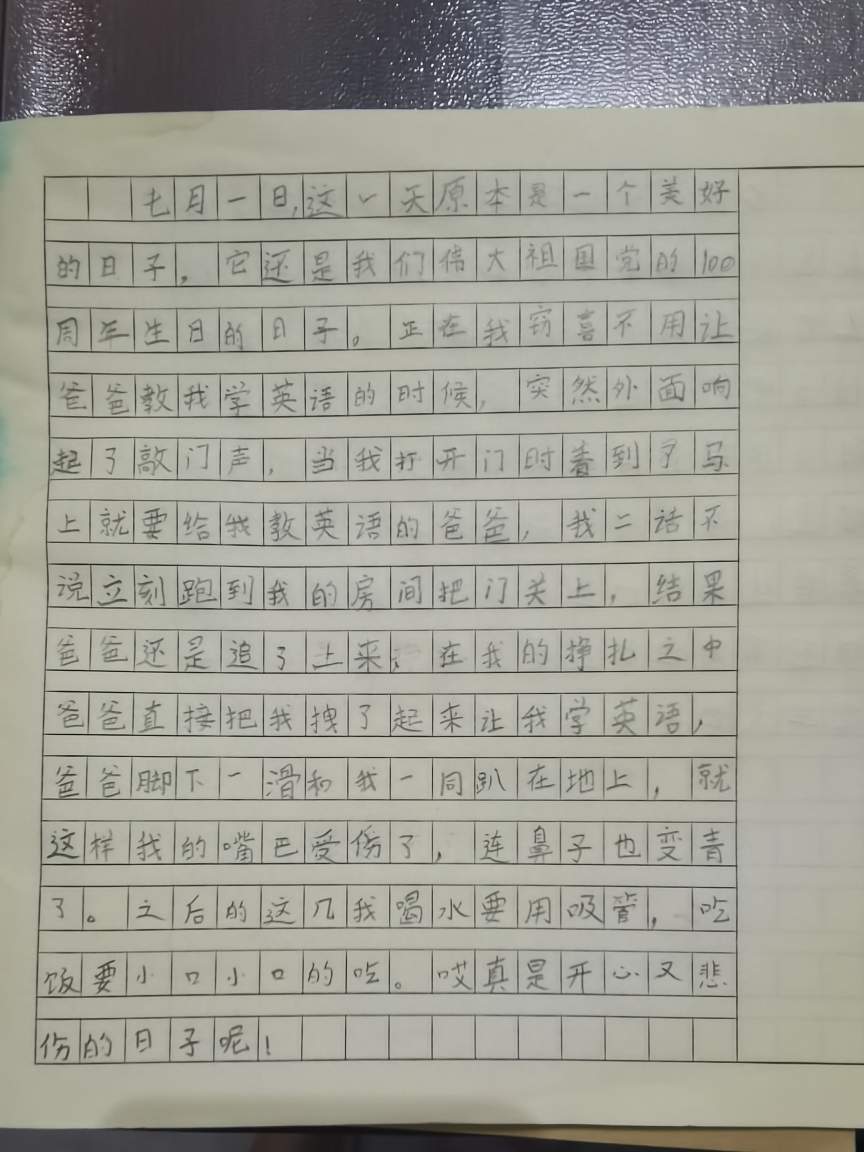 七月一日,这一天原本是一个美好
的日子，它还是我们伟大祖国党的100
周年生日的日子。正在我窃喜不用让
爸爸教我学英语的时候，突然外面响
起了敲门声，当我打开门时看到了马
上就要给我教英语的爸爸，我二话不
说立刻跑到我的房间把门关上，结果
爸爸还是追了上来，在我的挣扎之中
爸爸直接把我拽了起来让我学英语，
爸爸脚下一滑和我一同趴在地上，就
这样我的嘴巴受伤了，连鼻子也变青
了。之后的这几我喝水要用吸管，吃
饭要小口小口的吃。哎真是开心又悲
伤的日子呢！